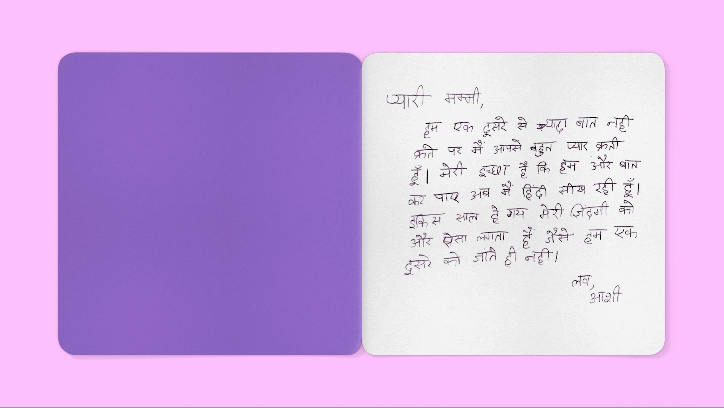 प्यारी मम्मी,
हम एक दूसरे से ज्यादा बात नहीं
करते पर मैं आपसे बहुत प्यार करती
हूँ। मेरी इच्छा है कि हम और बात
कर पाए अब मैं हिंदी सीख रही हूँ।
इकिस साल हो गय मेरी ज़िंदगी को
और ऐसा लगता है जैसे हम एक
दुसरे को जाते ही नहीं।
लव,
आशी